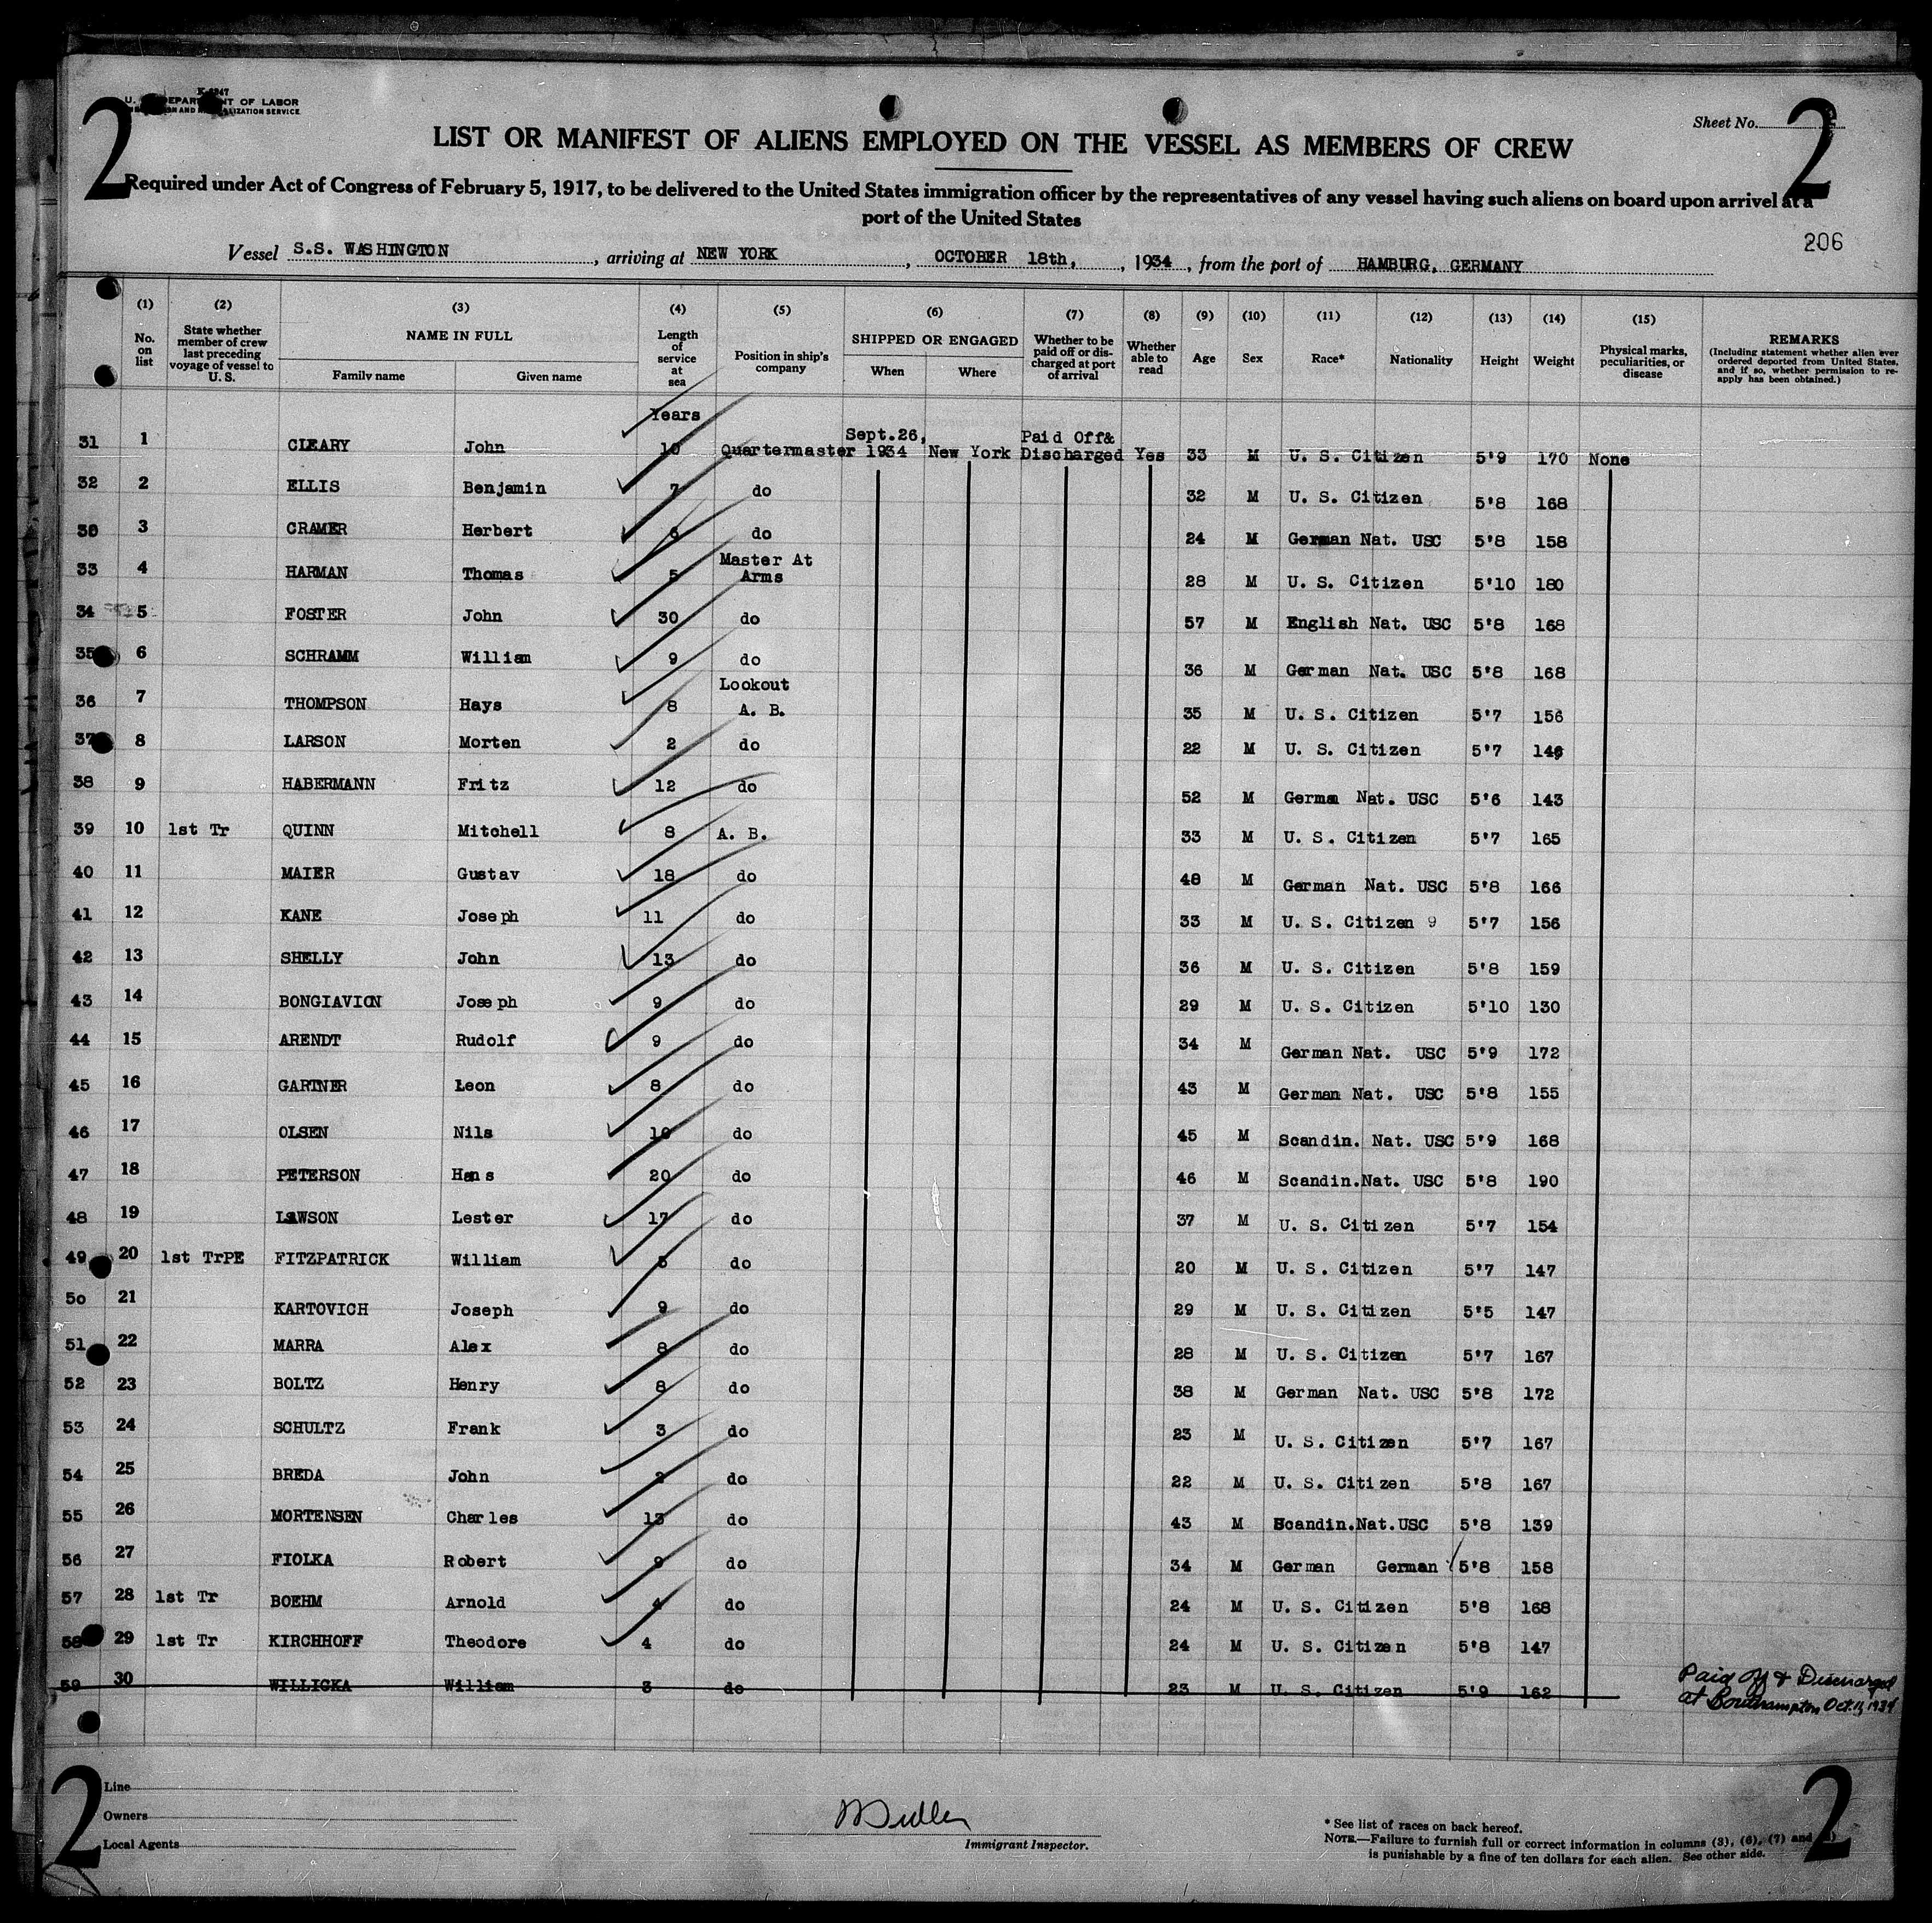 K-6247
U. S. DEPARTMENT OF LABOR
2
2
Sheet No.
LIST OR MANIFEST OF ALIENS EMPLOYED ON THE VESSEL AS MEMBERS OF CREW
Required under Act of Congress of February 5, 1917, to be delivered to the United States immigration officer by the representatives of any vessel having such aliens on board upon arrival at a
port of the United States
206
Vessel S.S. WASHINGTON, arriving at NEW YORK, OCTOBER 18th, 1934, from the port of HAMBURG, GERMANY
(1) (2) (3) (4) (5) (6) (7) (8) (9) (10) (11) (12) (13) (14) (15)
No. on list State whether member of crew last preceding voyage of vessel to U. S. NAME IN FULL Family name Given name Length of service at sea Position in ship's company SHIPPED OR ENGAGED When Where Whether to be paid off or discharged at port of arrival Whether able to read Age Sex Race* Nationality Height Weight Physical marks, peculiarities, or disease REMARKS (Including statement whether alien ever ordered deported from United States, and if so, whether permission to re-apply has been obtained.)
Years
31 1 CLEARY John 10 Quartermaster Sept.26, 1934 New York Paid Off& Discharged Yes 33 M U. S. Citizen 5'9 170 None
32 2 ELLIS Benjamin 7 do 32 M U. S. Citizen 5'8 168
30 3 CRAMER Herbert 6 do 24 M German Nat. USC 5'8 158
33 4 HARMAN Thomas 5 Master At Arms 28 M U. S. Citizen 5'10 180
34 5 FOSTER John 30 do 57 M English Nat. USC 5'8 168
35 6 SCHRAMM William 9 do 36 M German Nat. USC 5'8 168
36 7 THOMPSON Hays 8 Lookout A. B. 35 M U. S. Citizen 5'7 156
37 8 LARSON Morten 2 do 22 M U. S. Citizen 5'7 146
38 9 HABERMANN Fritz 12 do 52 M Germa Nat. USC 5'6 143
39 10 1st Tr QUINN Mitchell 8 A. B. 33 M U. S. Citizen 5'7 165
40 11 MAIER Gustav 18 do 48 M German Nat. USC 5'8 166
41 12 KANE Joseph 11 do 33 M U. S. Citizen 9 5'7 156
42 13 SHELLY John 13 do 36 M U. S. Citizen 5'8 159
43 14 BONGIAVION Joseph 9 do 29 M U. S. Citizen 5'10 130
44 15 ARENDT Rudolf 9 do 34 M German Nat. USC 5'9 172
45 16 GARTNER Leon 8 do 43 M German Nat. USC 5'8 155
46 17 OLSEN Nils 10 do 45 M Scandin. Nat. USC 5'9 168
47 18 PETERSON Hans 20 do 46 M Scandin.Nat. USC 5'8 190
48 19 LAWSON Lester 17 do 37 M U. S. Citizen 5'7 154
49 20 1st TrPE FITZPATRICK William 5 do 20 M U. S. Citizen 5'7 147
50 21 KARTOVICH Joseph 9 do 29 M U. S. Citizen 5'5 147
51 22 MARRA Alex 8 do 28 M U. S. Citizen 5'7 167
52 23 BOLTZ Henry 8 do 38 M German Nat. USC 5'8 172
53 24 SCHULTZ Frank 3 do 23 M U. S. Citizen 5'7 167
54 25 BREDA John do 22 M U. S. Citizen 5'8 167
55 26 MORTENSEN Charles 13 do 43 M Scandin.Nat.USC 5'8 139
56 27 FIOLKA Robert 9 do 34 M German German 5'8 158
57 28 1st Tr BOEHM Arnold 4 do 24 M U. S. Citizen 5'8 168
58 29 1st Tr KIRCHHOFF Theodore 4 do 24 M U. S. Citizen 5'8 147
59 30 WILLICKA William 3 do 23 M U. S. Citizen 5'9 162 Paid Off & Discharged
at Southampton Oct. 11, 1934
2
2
Line
Owners
Local Agents
Immigrant Inspector.
* See list of races on back hereof.
NOTE.—Failure to furnish full or correct information in columns (3), (6), (7) and
is punishable by a fine of ten dollars for each alien. See other side.